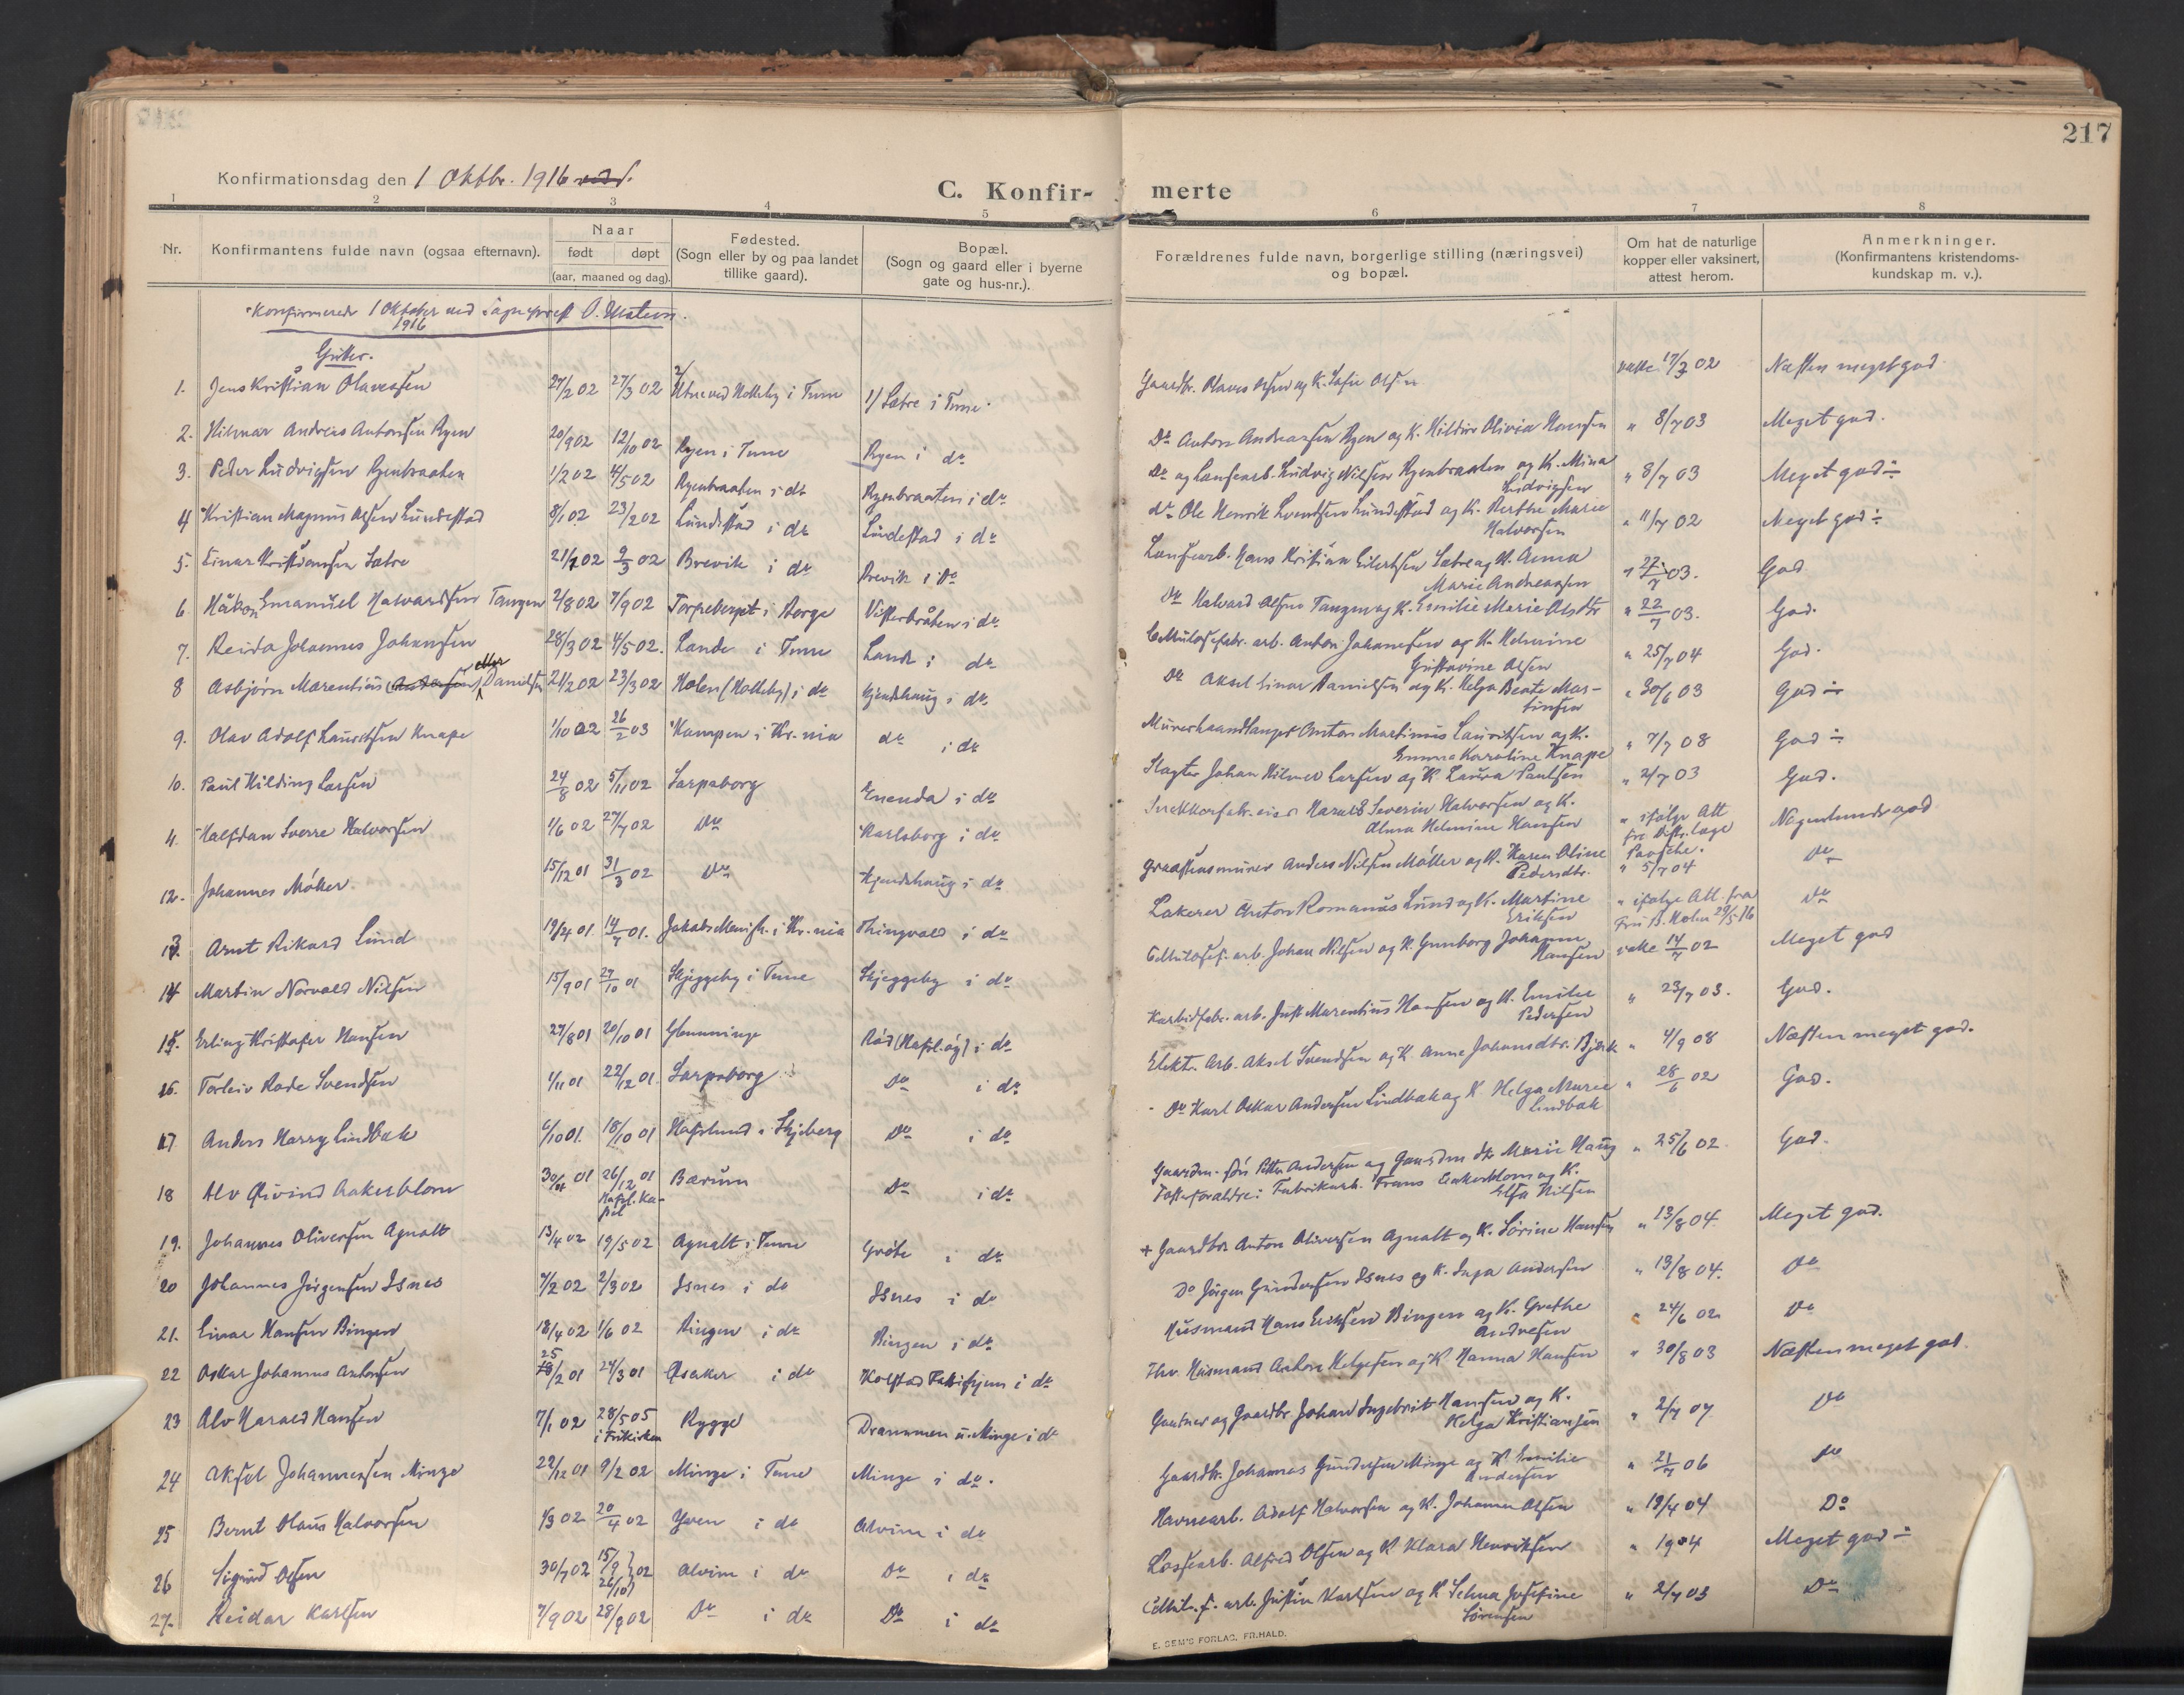 217
Konfirmationsdag den 1 Oktbr. 1916
C. Konfir- merte
1 2 3 4 5 6 7 8
Nr.
Konfirmantens fulde navn (ogsaa efternavn).
Naar
født døpt
(aar, maaned og dag).
Fødested.
(Sogn eller by og paa landet
tillike gaard).
Bopæl.
(Sogn og gaard eller i byerne
gate og hus-nr.).
Forældrenes fulde navn, borgerlige stilling (næringsvei)
og bopæl.
Om hat de naturlige
kopper eller vaksinert,
attest herom.
Anmerkninger.
(Konfirmantens kristendoms-
kundskap m. v.).
Konfirmerede 1 Oktober ved Sogneprest O.
1916
Gutter.
1. Jens Kristian Olavessen 27/2 02 27/3 02 i Tune 1/ Sætre i Tune. Gaardbr. Olaves Olsen og K. Sofie Olsen vakc. 17/3 02 Næsten meget god
2. Hilmar Andreas Antonsen Ryen 20/9 02 12/10 02 Ryen i Tune Ryen i do Do Anton Andreassen Ryen og K. Hildur Olivia Hansen " 8/7 03 Meget god.
3. Peder Ludvigsen Ryenbraaten 1/2 02 4/5 02 Ryenbraaten i do Ryenbraaten i do Do og Løsearb. Ludvig Nilsen Ryenbraaten og K. Mina Ludvigsen " 8/7 03 Meget god ÷
4 Kristian Magnus Olsen Lundestad 8/1 02 23/2 02 Lundestad i do Lundestad i do do Ole Henrik Lundestad og K. Berthe Marie Halvorsen " 11/7 02 Meget god ÷
5. Einar Kristiansen Sætre 21/1 02 9/3 02 Brevik i do Brevik i do Løsearb. Hans Kristian Eilertsen Sætre og K. Anna Marie Andreassen " 27/7 03. God
6. Håkon Emanuel Halvardsen Tangen 2/8 02 7/9 02 Torpeberget i Borge Visterbråten i do Do Halvard Olsen Tangen og K. Emilie Marie Olsdtr " 22/7 03. God.
7. Reida Johannes Johansen 28/3 02 4/5 02. Lande i Tune Lande i do Cellulosefabr. arb. Anton Johansen og K. Helmine Gustavine Olsen " 25/7 04 God.
8 Asbjørn Marentius (Andersen) eller Danielsen 21/2 02 23/3 02 Holen (Holleby) i do Gjendshaug i do Do Aksel Einar Danielsen og K. Helga Beate Martinsen " 30/6 03 God ÷
9. Olav Adolf Lauritsen Knape 1/10 02 26/2 03 Kampen i Kr.nia do i do Murerhaandlanger Anton Martinius Lauritsen og K. Emma Karoline Knape " 7/7 08 God ÷
10. Paul Hilding Larsen 24/8 02 5/11 02 Sarpsborg Enenda i do Slagter Johan Hilmer Larsen og K Laura Paulsen " 2/7 03 God.
Halfdan Sverre Halvorsen 1/6 02 27/7 02 Do Karlsborg i do Harald Severin Halvorsen og K. Alma Helmine Hansen " ifølge Att fra Distr. læge Paasche. Nogenlunde god
12. Johannes Møller. 15/12 01 31/3 02 Do Gjendshaug i do Graastensmurer Anders Nilsen Møller og K. Karen Oline Pedersdtr. " 5/7 04 Do
13 Arnt Rikard Lund 19/4 01 14/7 01. Jakobs Menigh. i Kr.nia Thingvald i do Lakerer Anton Romanus Lund og K. Martine Eriksen " ifølge Att. fra Fru B. Holm 29/5 16 Do
14 Martin Norvald Nilsen 15/9 01 27/10 01 Skjeggeby i Tune Skjeggeby i do Cellulosef. arb. Johan Nilsen og K. Gunborg Johanne Hansen vakc 14/7 02 Meget god
15. Erling Kristofer Hansen 27/8 01 20/10 01 Glemminge Rød (Hafsl.øg) i do Karbidfabr. arb. Just Marentius Hansen og K. Emilie Pedersen " 23/7 03. God.
16. Torleiv Rode Svendsen 1/11 01 22/12 01 Sarpsborg Do i do Elekt. Arb. Aksel Svendsen og K. Anne Johansdtr. Bjørk " 4/9 08 Næsten meget god.
17. Anders Harry Lindbak 6/10 01. 18/10 01 Hafslund i Skjeberg Do i do Do Karl Oskar Andersen Lindbak og K Helga Marie Lindbak " 28/6 02 God.
18 Alv Øivind Aakerblom 30/ 01 26/12 01 Hafsl. Kapel Bærum Do i do Peter Andersen og Marie Haug Fosterforældre: Fabrikarb. Frans Aakerblom og K. Elsa Nilsen " 25/6 02 God.
19. Johannes Oliversen Agnalt 13/4 02 19/5 02 Agnalt i Tune Grøte i do + Gaardbr Anton Oliversen Agnalt og K. Sørine Hansen " 13/8 04. Meget god.
20 Johannes Jørgensen Isnes 7/2 02 2/3 02 Isnes i do Isnes i do Do Jørgen Gundersen Isnes og K. Inga Andersen " 13/8 04. Do
21. Einar Hansen Bingen 18/4 02 1/6 02 Bingen i do Bingen i do Husmand Hans Eriksen Bingen og K. Grethe Andresen " 24/6 02 Do
22 Oskar Johannes Antonsen 25/2 01 24/3 01 Øsaker i do Kolstad Fattighjem i do Fhv. Husmand Anton Helgesen og K Hanna Hansen " 30/8 03 Næsten meget god.
23 Alv Harald Hansen 7/1 02 28/5 05 i Frikirken Rygge Drammen u. Minge i do Gartner og Gaardbr Johan Ingebrit Hansen og K. Helga Kristiansen " 2/7 07 Do
24 Aksel Johannessen Minge 22/12 01 9/2 02 Minge i Tune Minge i do. Gaardbr. Johannes Gundersen Minge og K Emilie Andersen " 21/7 06 Do
25 Bernt Olaus Halvorsen 1/3 02 20/4 02 Yven i do Alvim i do Havnearb. Adolf Halvorsen og K. Johanne Olsen " 19/4 04 Do
26 Sigurd Olsen 30/7 02 15/9 26/10 } 02 Alvim i do Do i do Lossearb. Alfred Olsen og K Klara Henriksen " 1904 Meget god ÷
27. Reidar Karlsen 7/9 02 28/9 02 Do i do Do i do Cellul. f. arb. Justin Karlsen og K Selma Josefine Sørensen " 2/7 03 Do
E. SEM'S FORLAG. FR.HALD.